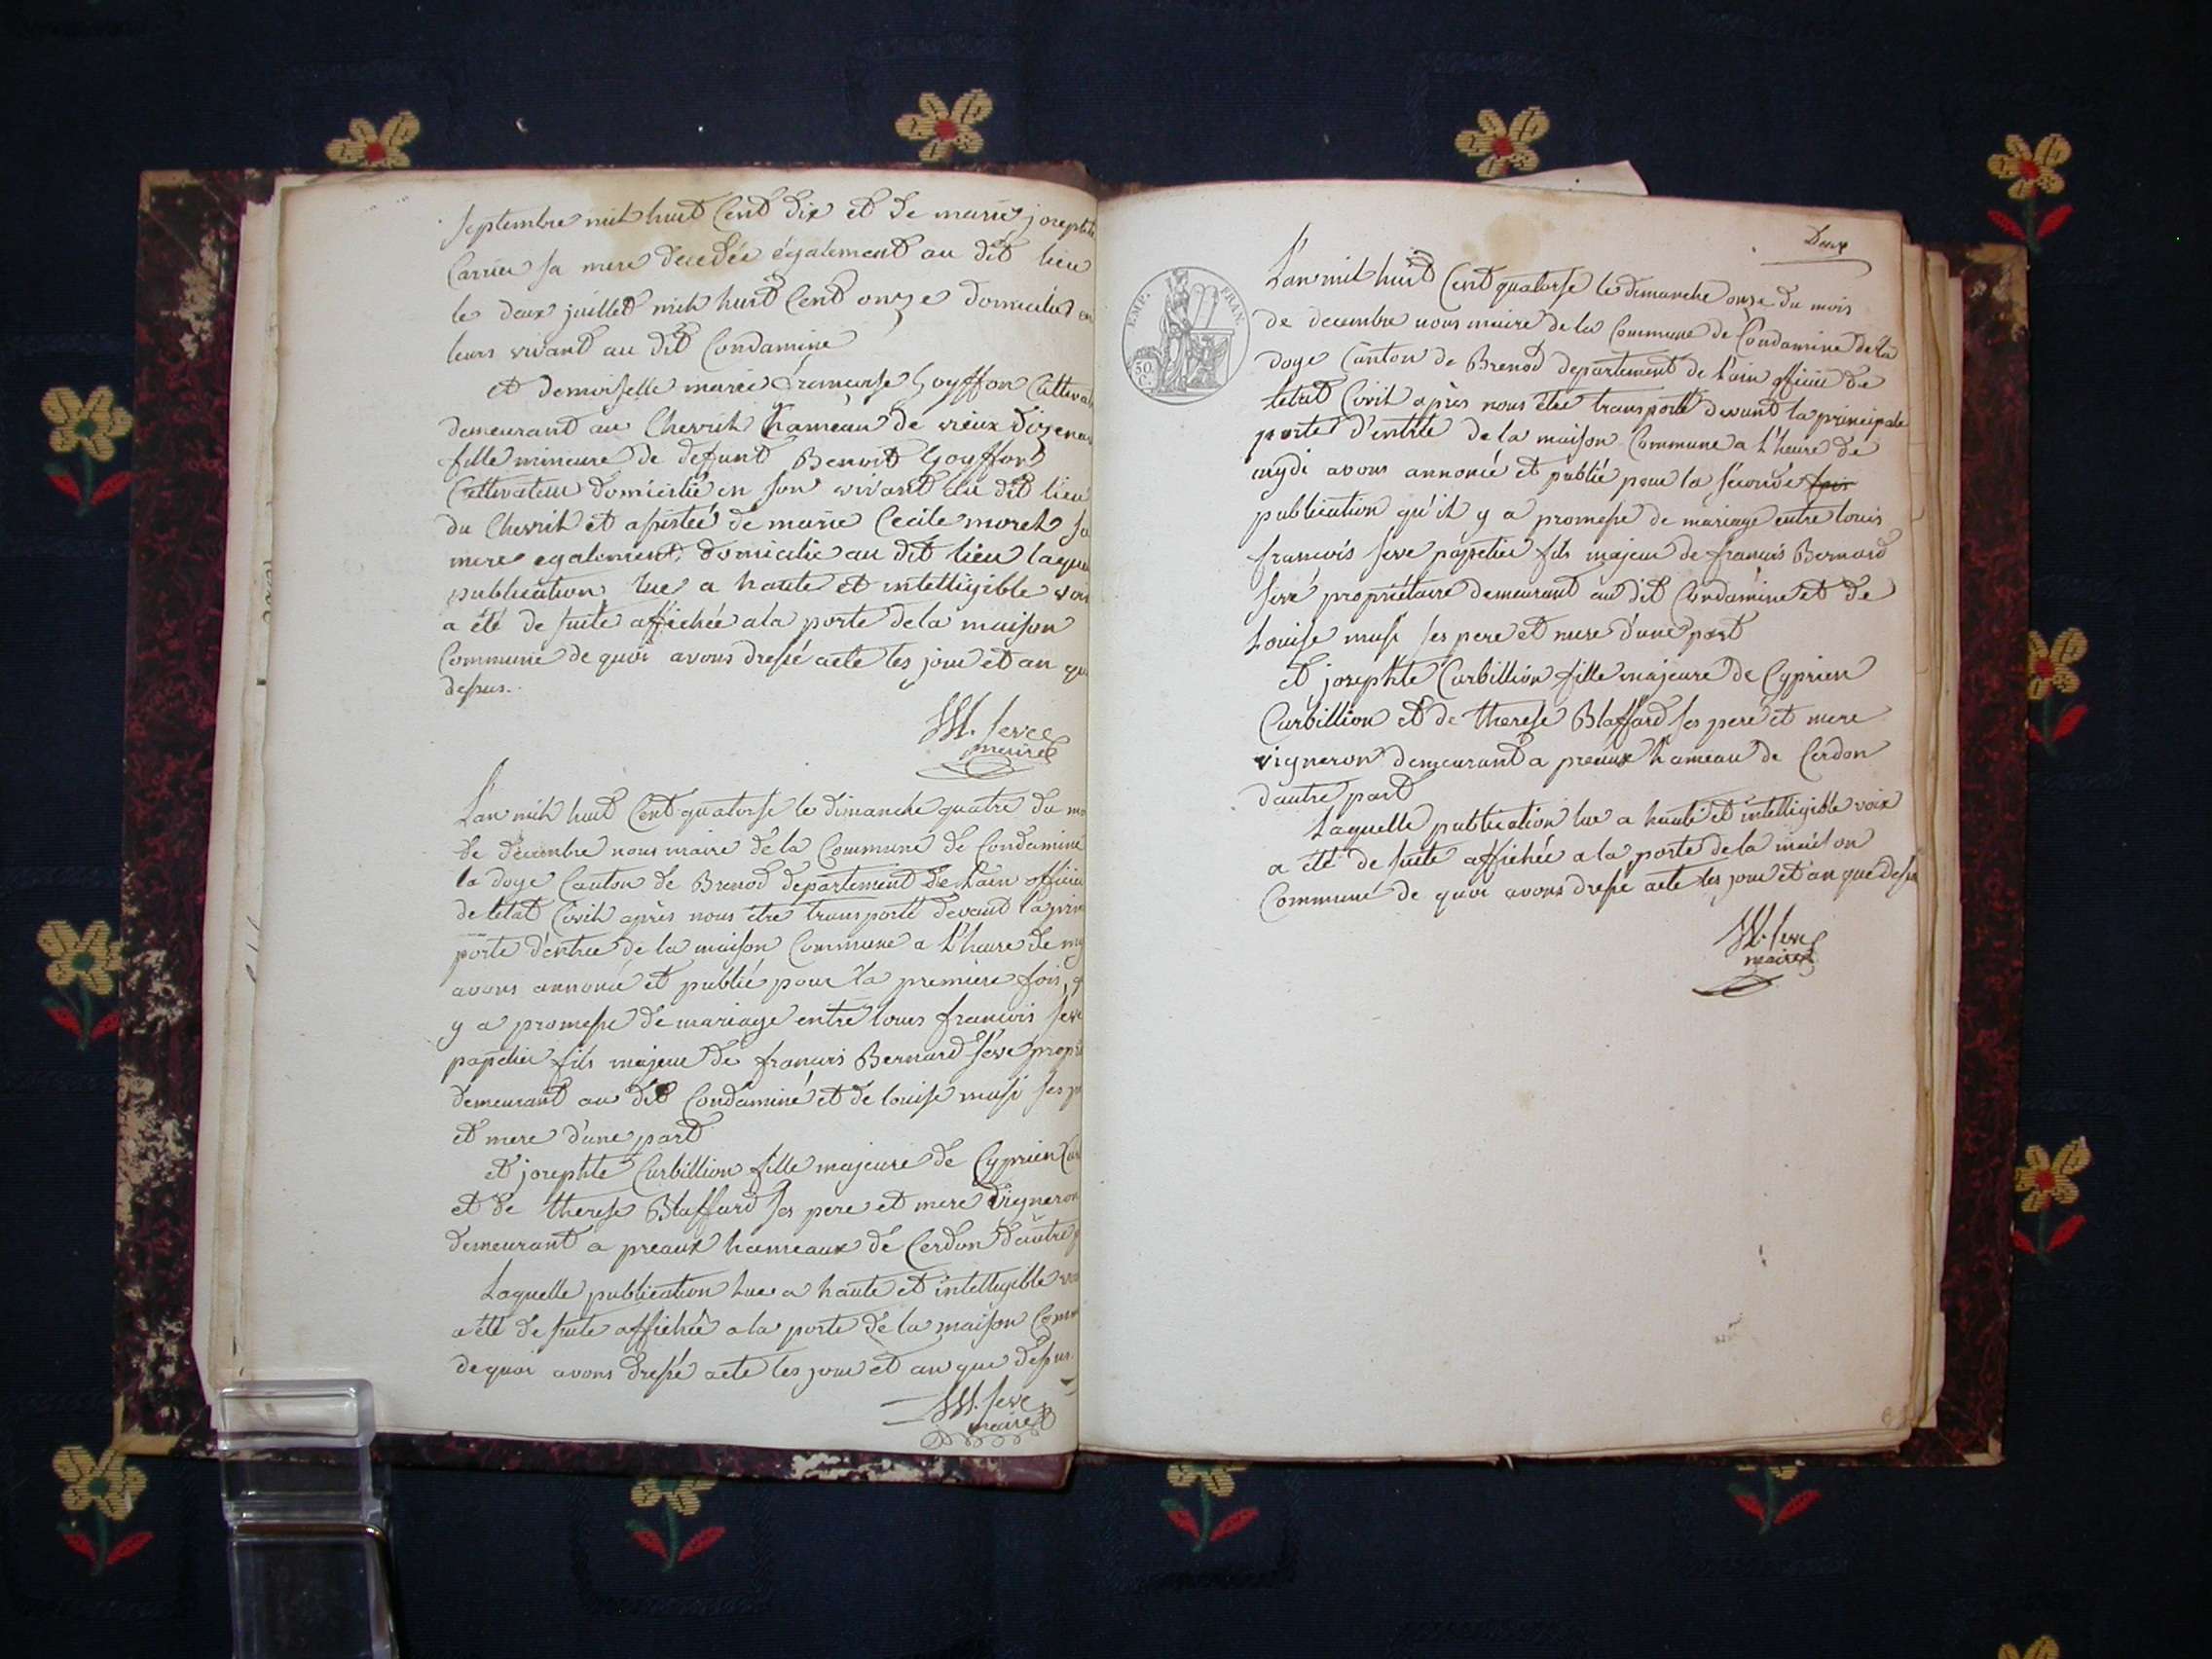 septembre mil huit Cent dix et de marie josephte
Carrier sa mere décédée également au dit lieu
le deux juillet mil huit Cent onze domiciliés en
leurs vivant au dit Condamine
et demoiselle marie francoise Goyffon Cultiva
demeurant au Chevril hameau de vieux dizenas
fille mineure de deffunt Benoit Goyffon
Cultivateur domicilié en son vivant au dit lieu
du Chevril et assistée de marie Cecile morel sa
mere egalement domicilie au dit lieu laque
publication lue a haute et intelligible voix
a été de suite affichée a la porte de la maison
Commune de quoi avons dressé acte les jour et an que
dessus.
M. Seve
maire
L'an mil huit Cent quatorse le dimanche quatre du mo
de decembre nous maire de la Commune de Condamine
la doye Canton de Brenod departement de l'ain officier
de letat Civil après nous être transporté devant la prin
porte d'entrée de la maison Commune a l'heure de my
avons annoncé et publié pour la premiere fois, q
y a promesse de mariage entre louis francois seve
papetier fils majeur de francois Bernard séve propri
demeurant au dit Condamine et de louise musi ses pe
et mere d'une part
et josephte Curbillion fille majeure de Cyprien Cur
et de therese Blaffard ses pere et mere vigneron
demeurant a preaux hameaux de Cerdon d'autre p
Laquelle publication lue a haute et intelligible voi
a été de suite affichée a la porte de la maison Comm
de quoi avons dressé acte les jour et an que dessus.
M. Seve
maire
Deux
EMP. FRAN.
50.
C.
L'an mil huit Cent quatorse le dimanche onze du mois
de decembre nous maire de la Commune de Condamine de la
doye Canton de Brenod departement de l'ain officier de
letat Civil après nous être transporté devant la principale
porte d'entrée de la maison Commune a l'heure de
mydi avons annoncé et publié pour la seconde fois
publication qu'il y a promesse de mariage entre louis
francois seve papetier fils majeur de francois Bernard
sevé propriétaire demeurant au dit Condamine et de
Louise musi ses pere et mere d'une part
et josephte Curbillion fille majeure de Cyprien
Curbillion et de therese Blaffard ses pere et mere
vigneron demeurant a preaux hameau de Cerdon
d'autre part
Laquelle publication lue a haute et intelligible voix
a été de suite affichée a la porte de la maison
Commune de quoi avons dressé acte les jour et an que dessus
M. Seve
maire